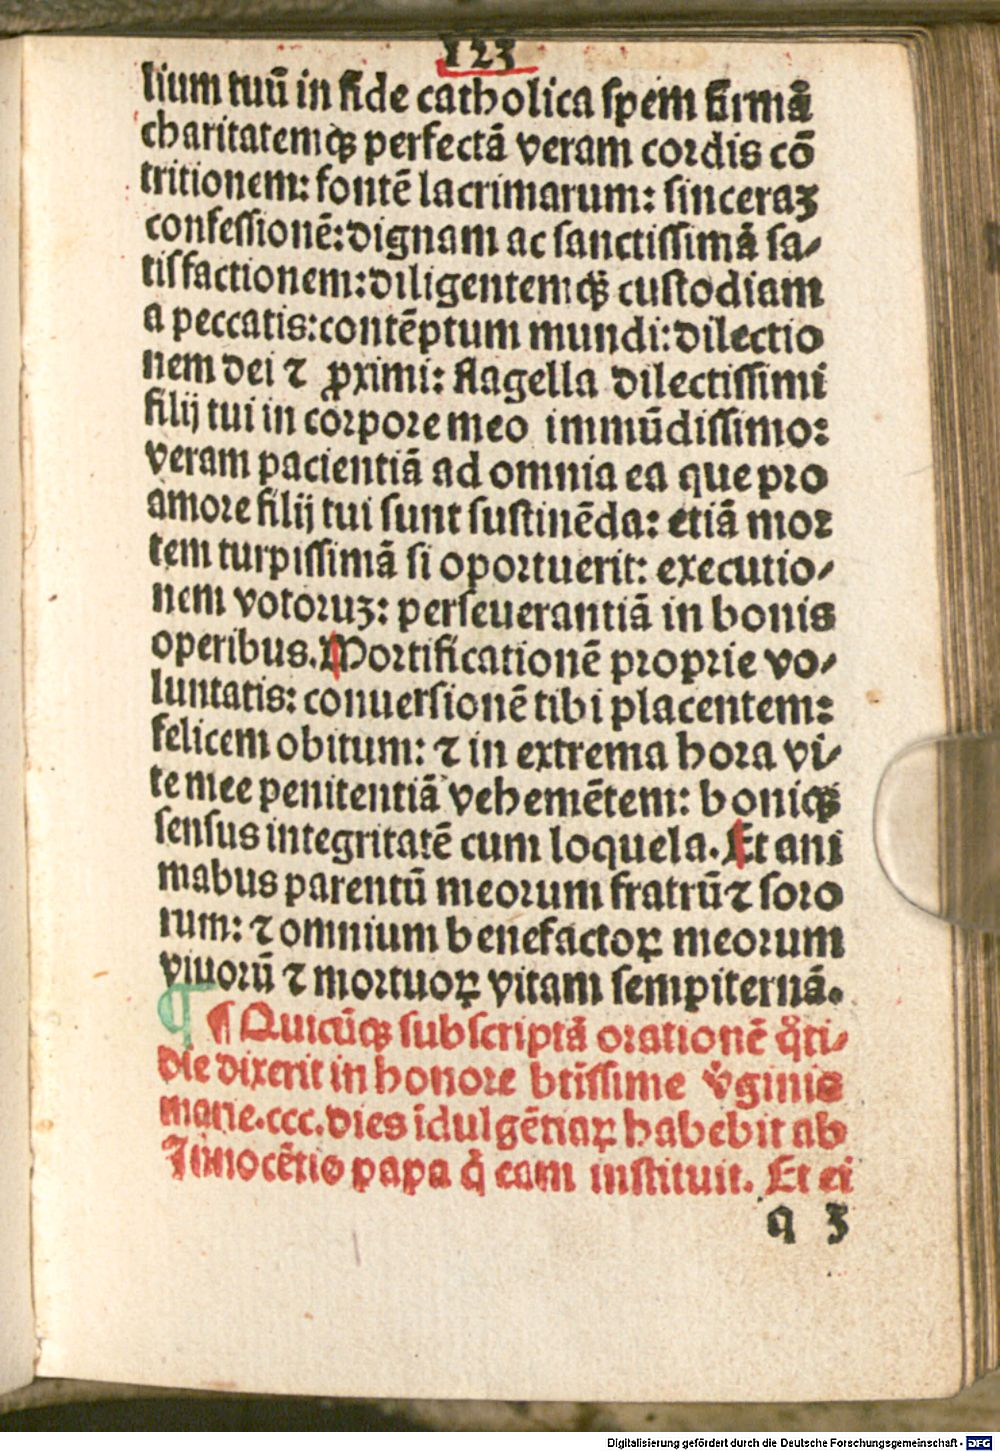 123
lium tuū in fide catholica spem firmā
charitatemqꝫ perfectā veram cordis cō
tritionem: fontē lacrimarum: sinceraꝫ
confessionē: dignam ac sanctissimā sa-
tisfactionem: diligentemqꝫ custodiam
a peccatis: contēptum mundi: dilectio
nem dei ⁊ ꝓximi: flagella dilectissimi
filij tui in corpore meo immūdissimo:
veram pacientiā ad omnia ea que pro
amore filij tui sunt sustinēda: etiā mor
tem turpissimā si oportuerit: executio-
nem votoruꝫ: perseuerantiā in bonis
operibus. Mortificationē proprie vo-
luntatis: conuersionē tibi placentem:
felicem obitum: ⁊ in extrema hora vi-
te mee penitentiā vehemētem: boniqꝫ
sensus integritatē cum loquela. Et ani
mabus parentū meorum fratrū ⁊ soro
rum: ⁊ omnium benefactoꝝ meorum
viuorū ⁊ mortuoꝝ vitam sempiternā.
¶ ¶ Quicūqꝫ subscriptā orationē q̊ti-
die dixerit in honore btissime v̓ginis
marie. ccc. dies īdulgētiaꝝ habebit ab
Innocētio papa q̇ eam instituit. Et ei
q 3
Digitalisierung gefördert durch die Deutsche Forschungsgemeinschaft - DFG